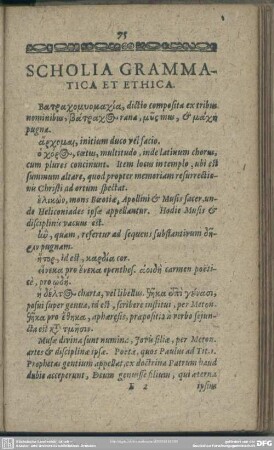 75
SCHOLIA GRAMMA-
TICA ET ETHICA.
Βατραχομυομαχία, dictio composita ex tribus
nominibus, βάτραχ⊕ rana, μῦς mus, & μάχη
pugna.
ἄρχομαι, initium duco vel facio.
ὁ χόρ⊕, cœtus, multitudo, inde latinum chorus,
cum plures concinunt. Item locus in templo, ubi est
summum altare, quod propter memoriam resurrectio-
nis Christi ad ortum spectat.
ἑλικὼν, mons Bœotiæ, Apollini & Musis sacer, un-
de Heliconiades ipsæ appellantur. Hodie Musis &
disciplinis vacuus est.
quam, refertur ad sequens substantivum
pugnam.
ἦτορ, id est, καρδία cor.
εἵνεκα pro ἕνεκα epenthes. ἀοιδὴ carmen poëti-
cè, pro ᾠδή.
ἡ δέλτ⊕ charta, vel libellus. θῆκα ἐπὶ γούνασι,
posui super genua, id est, scribere institui, per Meton.
θῆκα pro ἔθηκα, aphæresis, præpositio à verbo sejun-
cta est τμῆσιν.
Musæ divina sunt numina, Jovis filiæ, per Meton.
artes & disciplinæ ipsæ. Poetæ, quos Paulus ad Tit. 1.
Prophetas gentium appellat, ex doctrina Patrum haud
dubiè acceperunt, Deum genuisse filium, qui æterna
E 2
ipsius